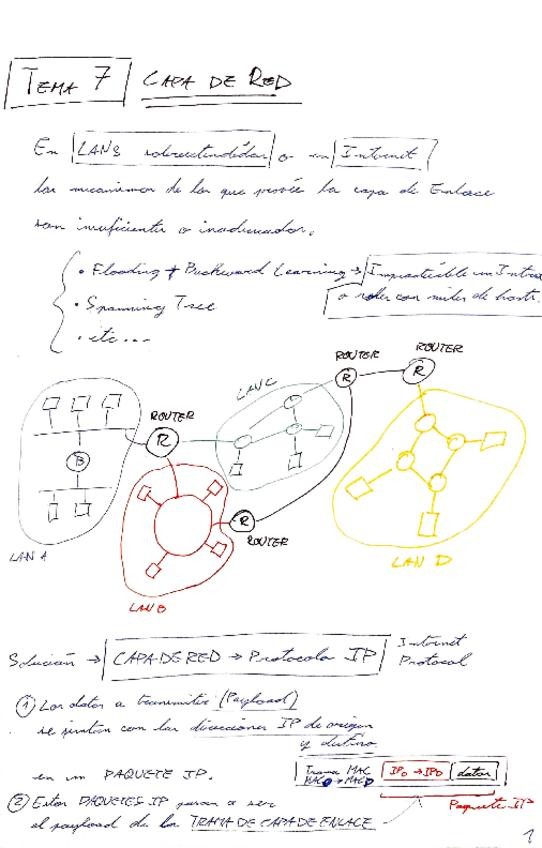 TEMA 7 CAPA DE RED
En LANs sobreextendidas o en Internet
los mecanismos de los que provée la capa de Enlace
son insuficientes o inadecuados.
• Flooding + Backward Learning → Impracticable en Intra
o redes con miles de hosts.
• Spanning Tree
• etc...
ROUTER
ROUTER
LAN C
R
R
ROUTER
R
B
R
ROUTER
LAN A
LAN B
LAN D
Solución → CAPA DE RED → Protocolo IP Internet
Protocol
① Los datos a transmitir (Payload)
se juntan con las direcciones IP de origen
y destino
en un PAQUETE IP.
Trama MAC
MACO → MACD
IPO → IPD datos
Paquete IP
② Estos PAQUETES IP pasan a ser
el payload de las TRAMA DE CAPA DE ENLACE
1